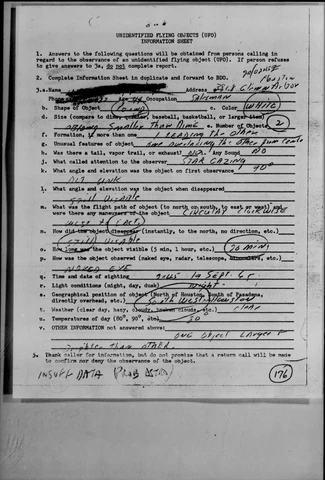 UNIDENTIFIED FLYING OBJECTS (UFO)
INFORMATION SHEET
1. Answers to the following questions will be obtained from persons calling in
regard to the observation of an unidentified flying object (UFO). If person refuses
to give answers to 3a, do not complete report.
2. Complete Information Sheet in duplicate and forward to BDO.
3.a. Name Address
Phone Age Occupation SALESMAN
b. Shape of Object (Round) c. Color WHITE
d. Size (compare to dime, quarter, baseball, basketball, or larger item)
SMALLER THAN DIME e. Number of Objects 2
f. Formation, if more than one 1 LEADING THE OTHER
g. Unusual features of object
h. Was there a tail, vapor trail, or exhaust? NO. Any Sound NO
j. What called attention to the observer STAR GAZING
k. What angle and elevation was the object on first observance 90°
l. What angle and elevation was the object when disappeared
STILL VISABLE
m. What was the flight path of object (to north or south, to east or west) and
were there any maneuvers of the object CIRCULAR
n. How did the object disappear (instantly, to the north, no direction, etc.)
(STILL) VISABLE
o. How long was the object visible (5 min, 1 hour, etc.) 20 MINS
p. How was the object observed (naked eye, radar, telescope, binoculars, etc.)
NAKED EYE
q. Time and date of sighting 19 SEPT. 65
r. Light conditions (night, day, dusk) night
s. Geographical position of object (North of Houston, South of Pasadena,
directly overhead, etc.) South West Houston
t. Weather (clear day, hazy, cloudy, broken clouds, etc.) clear
u. Temperatures of day (80°, 90°, etc) 80°
v. OTHER INFORMATION not answered above:
ONE Object LARGER &
brighter than other.
3. Thank caller for information, but do not promise that a return call will be made
to confirm nor deny the observation of the object.
INSUFF DATA PROB ASTRO
176